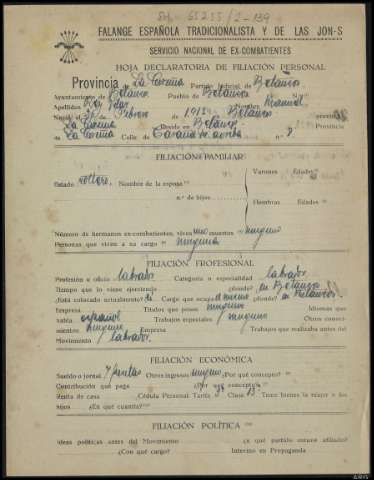 65255/2-139
FALANGE ESPAÑOLA TRADICIONALISTA Y DE LAS JON-S
SERVICIO NACIONAL DE EX-COMBATIENTES
HOJA DECLARATORIA DE FILIACIÓN PERSONAL
Provincia de La Coruña Partido Judicial de Betanzos
Ayuntamiento de Betanzos Pueblo de Betanzos
Apellidos Nombre Manuel
Nació el de Febrero de 1913 Betanzos
La Coruña Reside en Betanzos Provincia
de La Coruña Calle de n.º 8.
FILIACIÓN FAMILIAR
Varones Edades
Estado soltero Nombre de la esposa
n.º de hijos
Hembras Edades
Número de hermanos ex-combatientes, vivos uno muertos ninguno
Personas que viven a su cargo ninguna
FILIACIÓN PROFESIONAL
Profesión u oficio labrador Categoría o especialidad labrador
Tiempo que lo viene ejerciendo ¿dónde? en Betanzos
¿Está colocado actualmente? Si Cargo que ocupa el mismo ¿dónde? en Betanzos.
Empresa Títulos que posee ninguno Idiomas que
habla español Trabajos especiales ninguno Otros conoci-
mientos ninguno Empresa Trabajos que realizaba antes del
Movimiento labrador.
FILIACIÓN ECONÓMICA
Sueldo o jornal 7 pesetas Otros ingresos ninguno ¿Por qué concepto?
Contribución que paga ¿Por qué concepto?
Renta de casa Cédula Personal Tarifa 3ª Clase 13ª Tiene bienes la mujer o los
hijos ¿En qué cuantía?
FILIACIÓN POLÍTICA
Ideas políticas antes del Movimiento ¿A qué partido estuvo afiliado?
¿Con qué cargo? Intervino en Propaganda